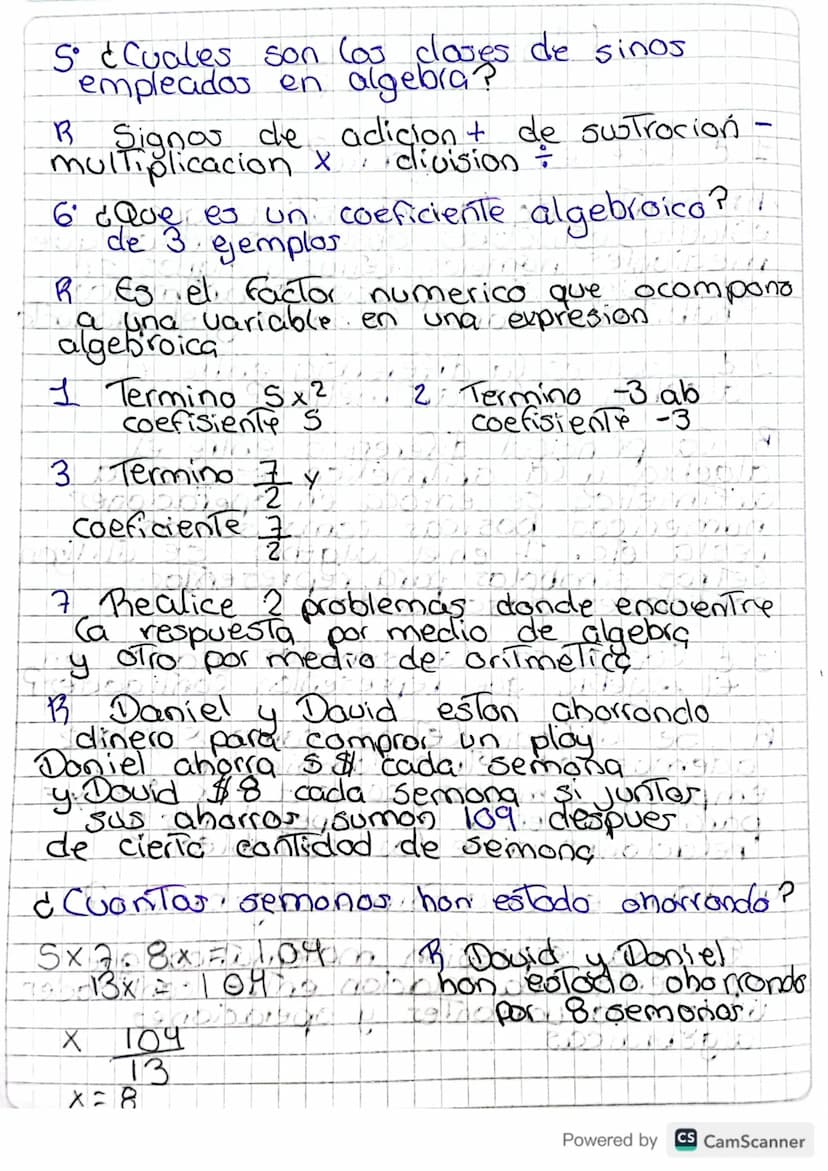 5° ¿Cuales son las clases de sinos
empleados en algebra?
R Signos de adicion + de sustracion -
multiplicacion x division ÷
6° ¿Que es un coeficiente algebraico?
de 3 ejemplos
R Es el factor numerico que acompana
a una variable en una expresion
algebraica
1 Termino 5x² 2 Termino -3 ab
coefisiente 5 coefisiente -3
3 Termino 7/2 y
coeficiente 7/2
7 Realice 2 problemas donde encuentre
la respuesta por medio de algebra
y otro por medio de aritmetica
R Daniel y David estan ahorrando
dinero para comprar un play
Daniel ahorra 5 $ cada semana
y David $8 cada semana si juntos
sus ahorros suman 109 despues
de cierta cantidad de semana
¿Cuantas semanas han estado ahorrando?
5x 8x = 104 R David y Daniel
13x = 104 han estado ahorrando
por 8 semanas
x 104/13
x = 8
Powered by CS CamScanner